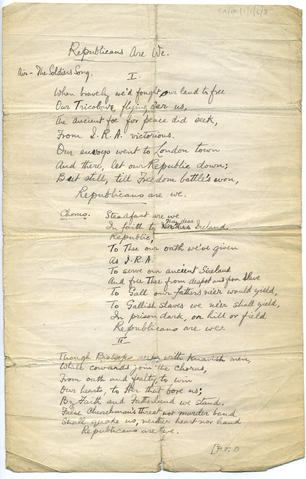 Republicans Are We.
Air - The Soldiers Song.
I.
When bravely we'd fought our land to free
Our Tricolour flying o'er us,
The ancient foe for peace did seek,
From I.R.A. victorious.
Our envoys went to London town
And there, let our Republic down;
But still, till Freedom battle's won,
Republicans are we.
Chorus. Steadfast are we
In faith to Ireland,
Republic,
To Thee our oath we've given
As I.R.A.
To serve our ancient Sireland
And free Thee from despot and from slave
To Gall our fathers ne'er would yield,
To Gallish slaves we ne'er shall yield,
In prison dark, on hill or field
Republicans are we.
II
Though Bishops with Knavish men,
While cowards join the chorus,
From oath and fealty, to win
Our hearts, to that bore us;
By Faith and Fatherland we stand,
False Churchman's threat nor murder band
Shall quake us, neither heart nor hand
Republicans are we.
[P.T.O